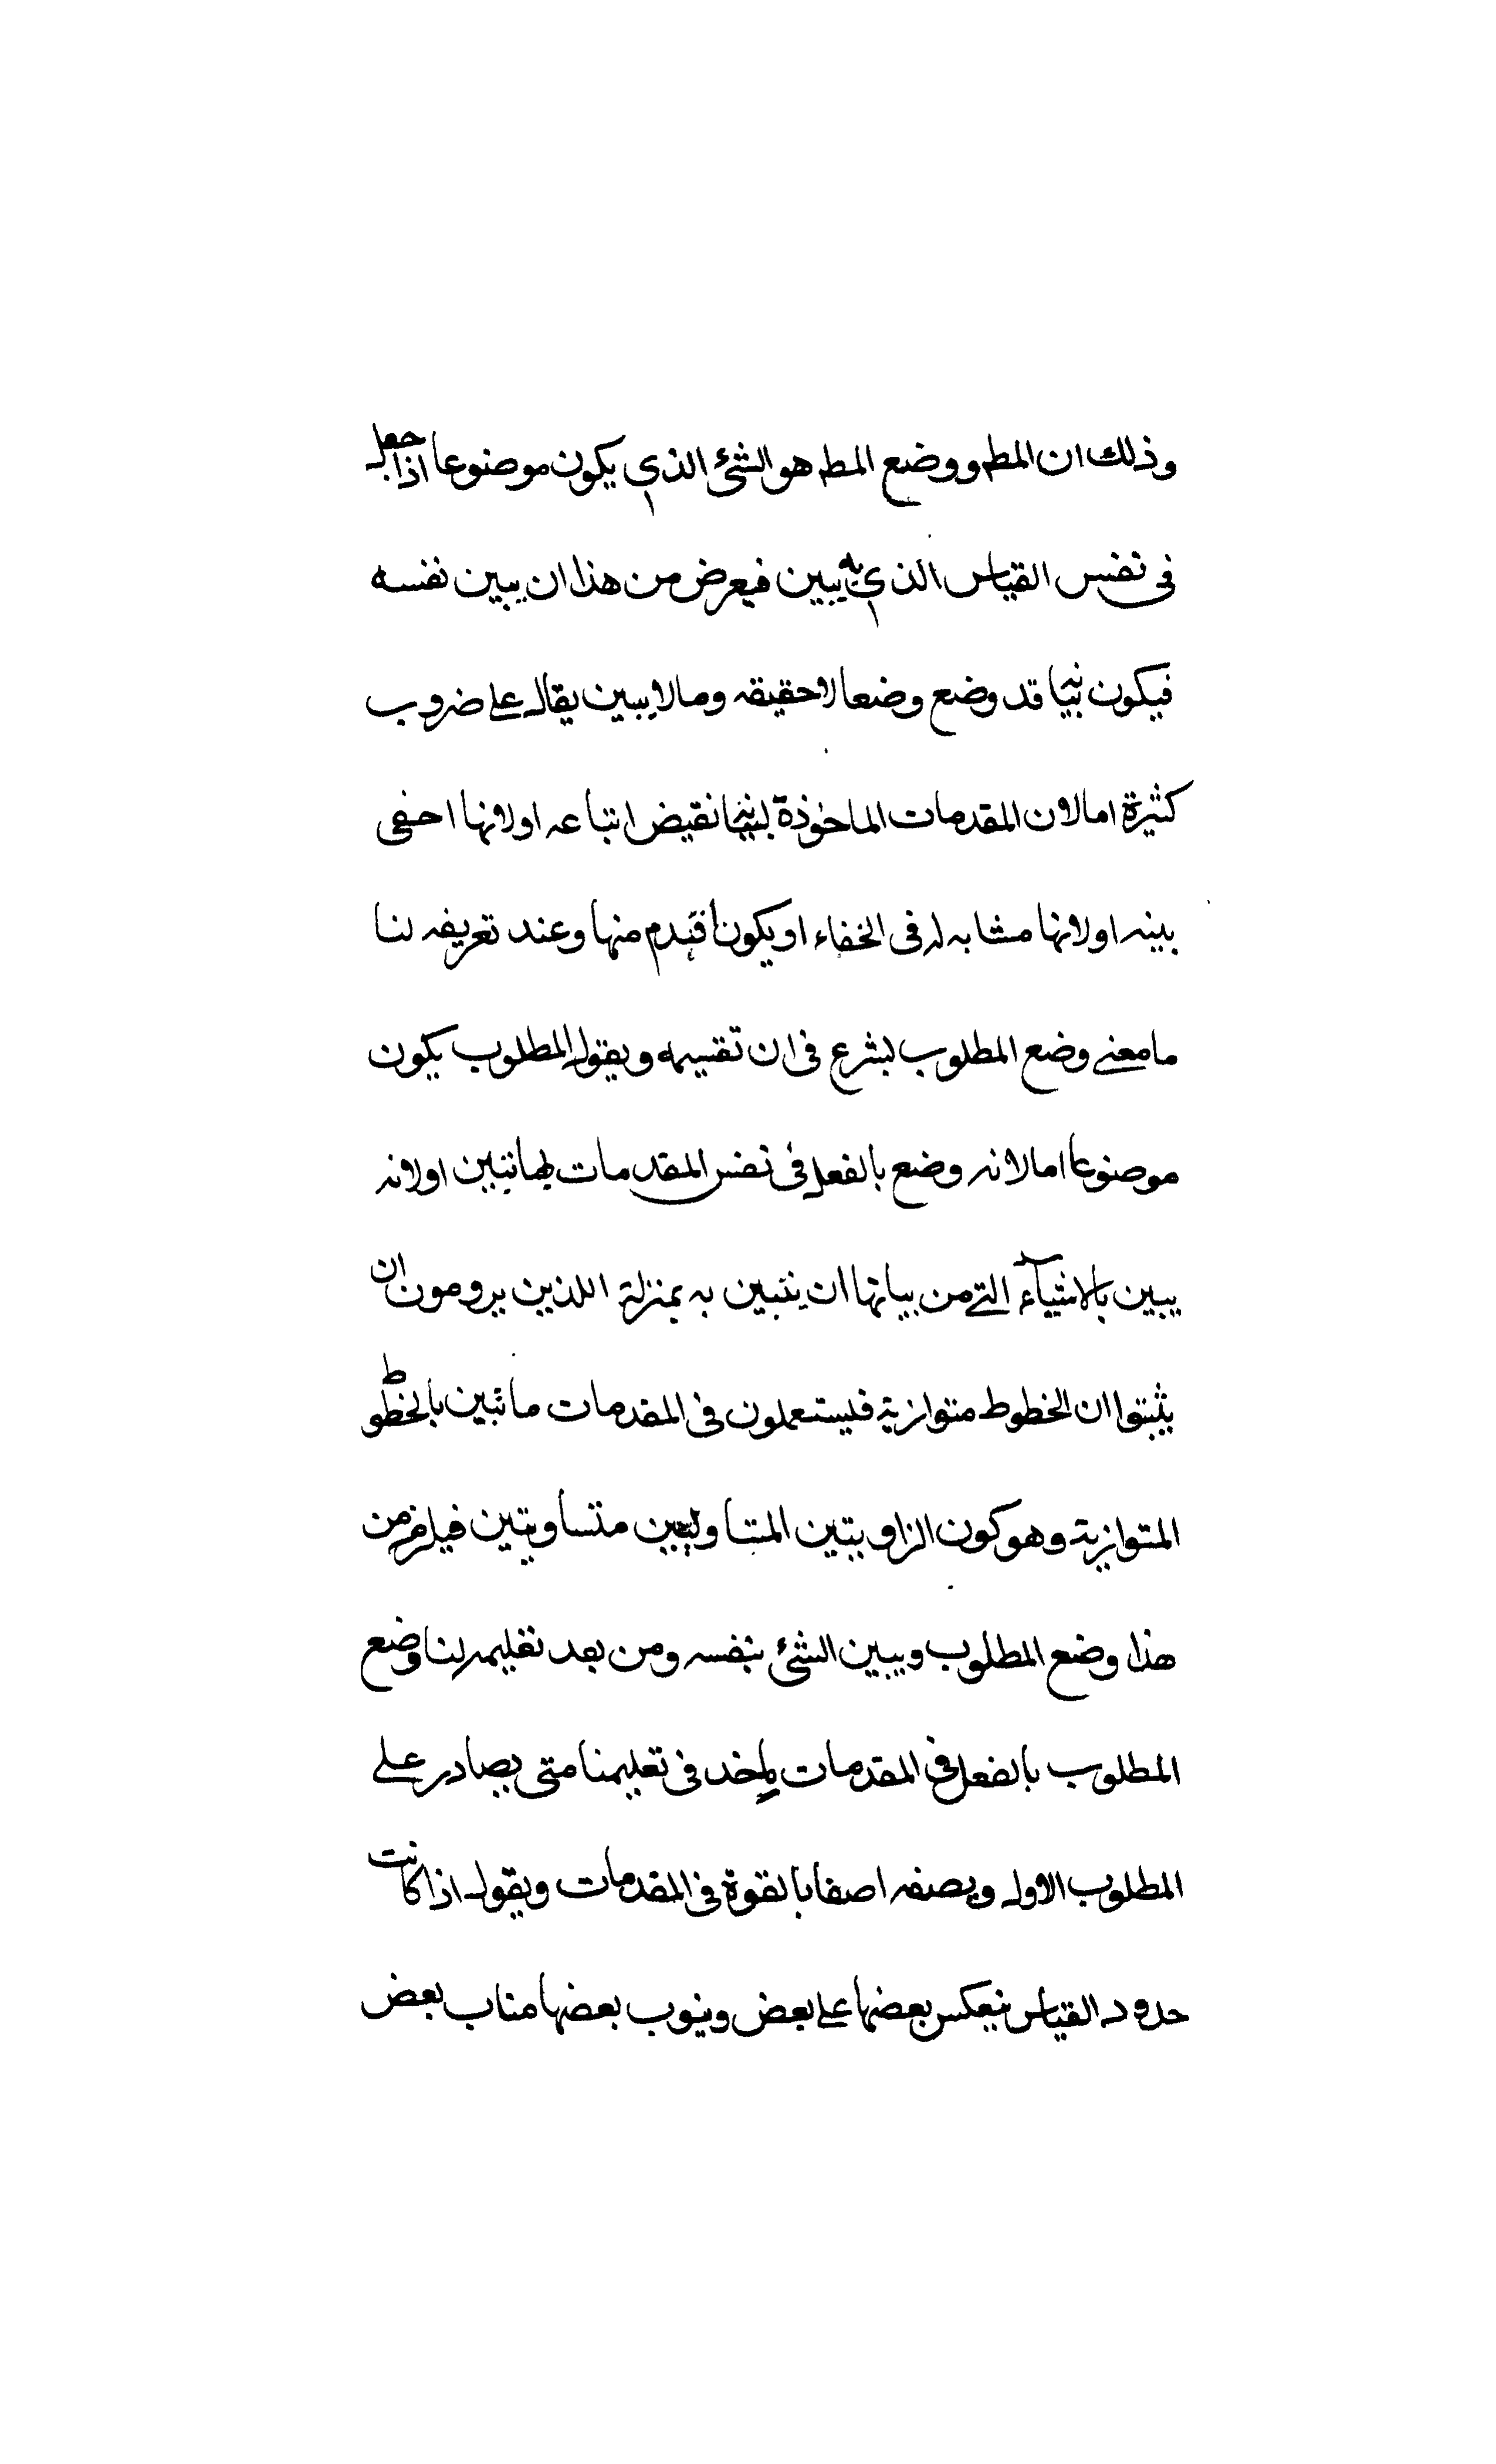 وذلك ان المطـ ووضع المطـ هو الشئ الذي يكون موضوعا اذا جعل
فى نفس القياس الذي به يبين فيعرض من هذا ان يبين نفسه
فيكون قد وضع وضعا لا حقيقه ومالا يبين يقال على ضروب
كثيرة اما لان المقدمات الماخوذة نقيض اتباعه او لانها اخفى
بينه او لانها مشابه له فى الخفاء او يكون اقدم منها وعند تعريفه لنا
ما معنى وضع المطلوب يشرع فى ان تقسيمه ويقول المطلوب يكون
موضوعا اما لانه وضع بالفعل فى نفس المقدمات بها تبين او لانه
يبين بالاشياء التى من بيانها ان يتبين به بمنزلة اللذين يرومون ان
يثبتوا ان الخطوط متوازية فيستعملون فى المقدمات ما تبين بالخطوط
المتوازية وهو كون الزاويتين متساويتين فيلزم من
هذا وضع المطلوب ويبين الشئ بنفسه ومن بعد تعليمه لنا وضع
المطلوب بالفعل فى المقدمات فى تعليمنا متى يصادر على
المطلوب الاول ويصنفه اصفا بالقوة فى المقدمات ويقول اذا كانت
حدود القياس ينعكس بعضها على بعض وينوب بعضها مناب بعض